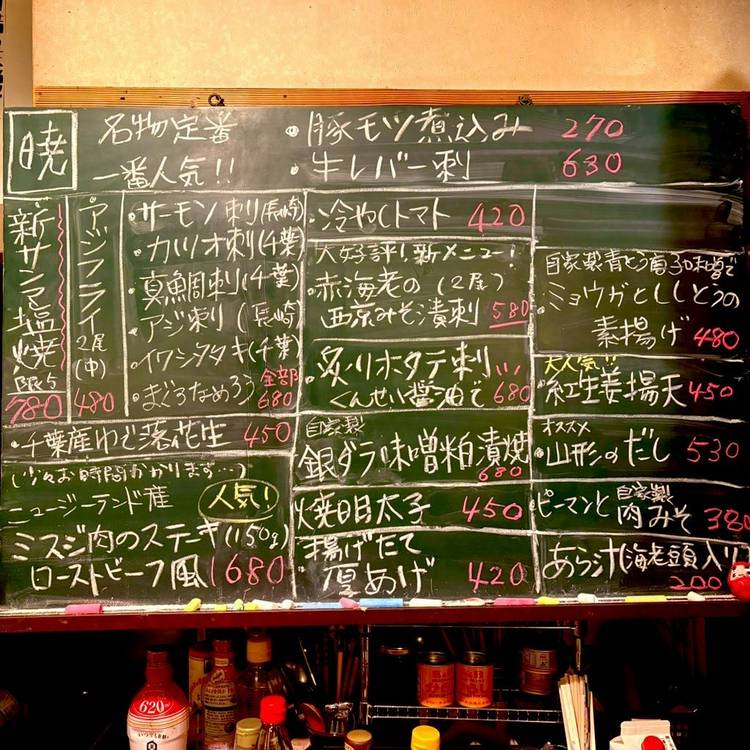 暁
名物定番
一番人気!!
・豚モツ煮込み 270
・牛レバー刺 630
新サンマ塩焼
限5
780
アジフライ
2尾
(中)
480
・サーモン刺(長崎)
・カツオ刺(千葉)
・真鯛刺(千葉)
・アジ刺(長崎
・イワシタタキ(千葉
・まぐろなめろう 全部
680
・千葉産ゆで落花生 450
(少々お時間かかります…)
ニュージーランド産 人気!
ミスジ肉のステーキ(150g)
ローストビーフ風 1680
・冷やしトマト 420
大好評!新メニュー!
・赤海老の(2尾)
西京みそ漬刺 580
・炙りホタテ刺
くんせい醤油で 680
自家製
銀ダラ味噌粕漬焼
680
焼明太子 450
揚げたて
厚あげ 420
自家製青とう南蛮味噌で
・ミョウガとししとうの
素揚げ 480
大人気!!
・紅生姜揚天 450
オススメ
・山形のだし 530
ピーマンと自家製
肉みそ 380
あら汁(海老頭入り
200
620
いつでも新鮮